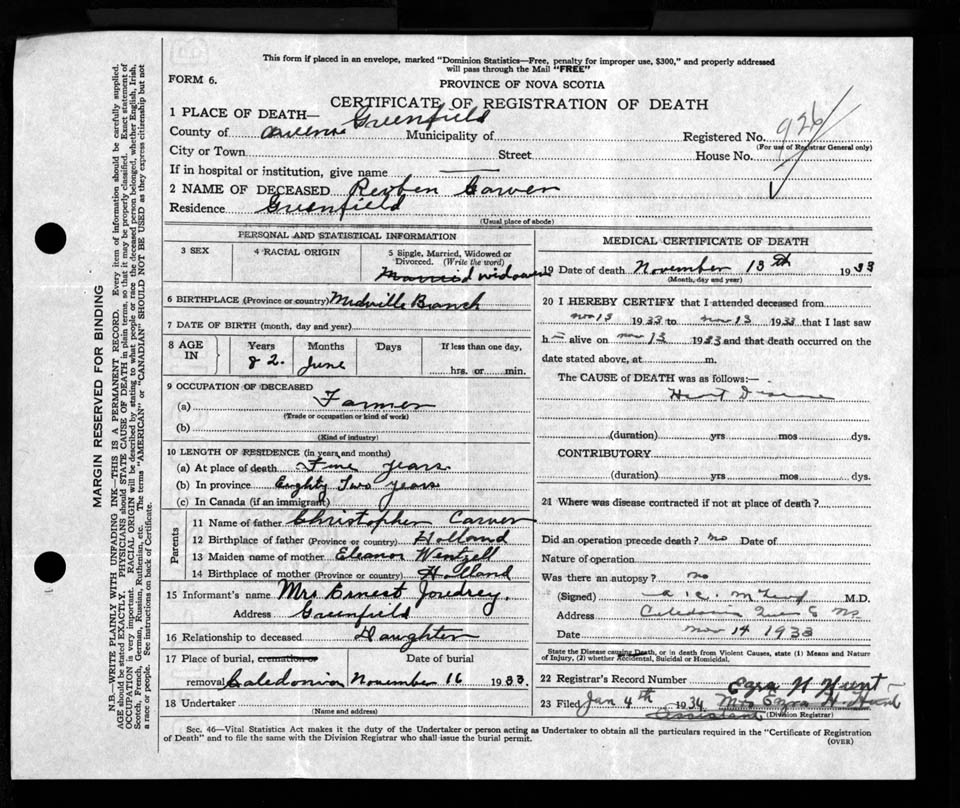 This form if placed in an envelope, marked "Dominion Statistics—Free, penalty for improper use, $300," and properly addressed
will pass through the Mail "FREE"
FORM 6.
PROVINCE OF NOVA SCOTIA
CERTIFICATE OF REGISTRATION OF DEATH
1 PLACE OF DEATH— Greenfield
County of Queens Municipality of Registered No. 926
(For use of Registrar General only)
City or Town Street House No.
If in hospital or institution, give name —
2 NAME OF DECEASED Reuben Carver
Residence Greenfield
(Usual place of abode)
PERSONAL AND STATISTICAL INFORMATION
3 SEX 4 RACIAL ORIGIN 5 Single, Married, Widowed or
Divorced. (Write the word)
Married widower
6 BIRTHPLACE (Province or country) Midville Branch
7 DATE OF BIRTH (month, day and year)
8 AGE IN Years Months Days If less than one day,
82. June hrs. or min.
9 OCCUPATION OF DECEASED
(a) Farmer
(Trade or occupation or kind of work)
(b)
(Kind of industry)
10 LENGTH OF RESIDENCE (in years and months)
(a) At place of death years
(b) In province Eighty Two years
(c) In Canada (if an immigrant)
Parents
11 Name of father Christopher Carver
12 Birthplace of father (Province or country) Holland
13 Maiden name of mother Eleanor Wentzell
14 Birthplace of mother (Province or country) Holland
15 Informant's name Mrs Ernest Joudrey.
Address Greenfield
16 Relationship to deceased Daughter
17 Place of burial, cremation or Date of burial
removal Caledonia November 16 1933.
18 Undertaker
(Name and address)
MEDICAL CERTIFICATE OF DEATH
19 Date of death November 13th 1933
(Month, day and year)
20 I HEREBY CERTIFY that I attended deceased from
nov 13 1933 to nov 13 1933 that I last saw
h— alive on nov 13 1933 and that death occurred on the
date stated above, at m.
The CAUSE of DEATH was as follows:—
Heart Disease
(duration) yrs mos dys.
CONTRIBUTORY
(duration) yrs. mos dys.
21 Where was disease contracted if not at place of death?
Did an operation precede death? no Date of
Nature of operation
Was there an autopsy? no
(Signed) M.D.
Address Caledonia Queens Co NS
Date nov 14 1933
State the Disease causing Death, or in death from Violent Causes, state (1) Means and Nature
of Injury, (2) whether Accidental, Suicidal or Homicidal.
22 Registrar's Record Number Ezra N Hunt
23 Filed Jan 4th 1934 Mrs Ezra N. Hunt
Assistant (Division Registrar)
Sec. 46—Vital Statistics Act makes it the duty of the Undertaker or person acting as Undertaker to obtain all the particulars required in the "Certificate of Registration
of Death" and to file the same with the Division Registrar who shall issue the burial permit.
(OVER)
MARGIN RESERVED FOR BINDING
N.B.—WRITE PLAINLY WITH UNFADING INK—THIS IS A PERMANENT RECORD. Every item of information should be carefully supplied.
AGE should be stated EXACTLY. PHYSICIANS should STATE CAUSE OF DEATH in plain terms, so that it may be properly classified. Exact statement of
OCCUPATION is very important. RACIAL ORIGIN will be described by stating to what people or race the deceased person belonged, whether English, Irish,
Scotch, French, German, Russian, Ruthenian, etc. The terms "AMERICAN" or "CANADIAN" SHOULD NOT BE USED as they express citizenship but not
a race or people. See instructions on back of Certificate.